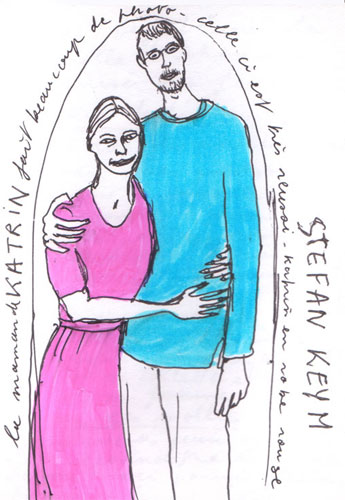 la maman de KATRIN fait beaucoup de photo - celle ci est très réussi - Katrin en robe rouge
STEFAN KEYM